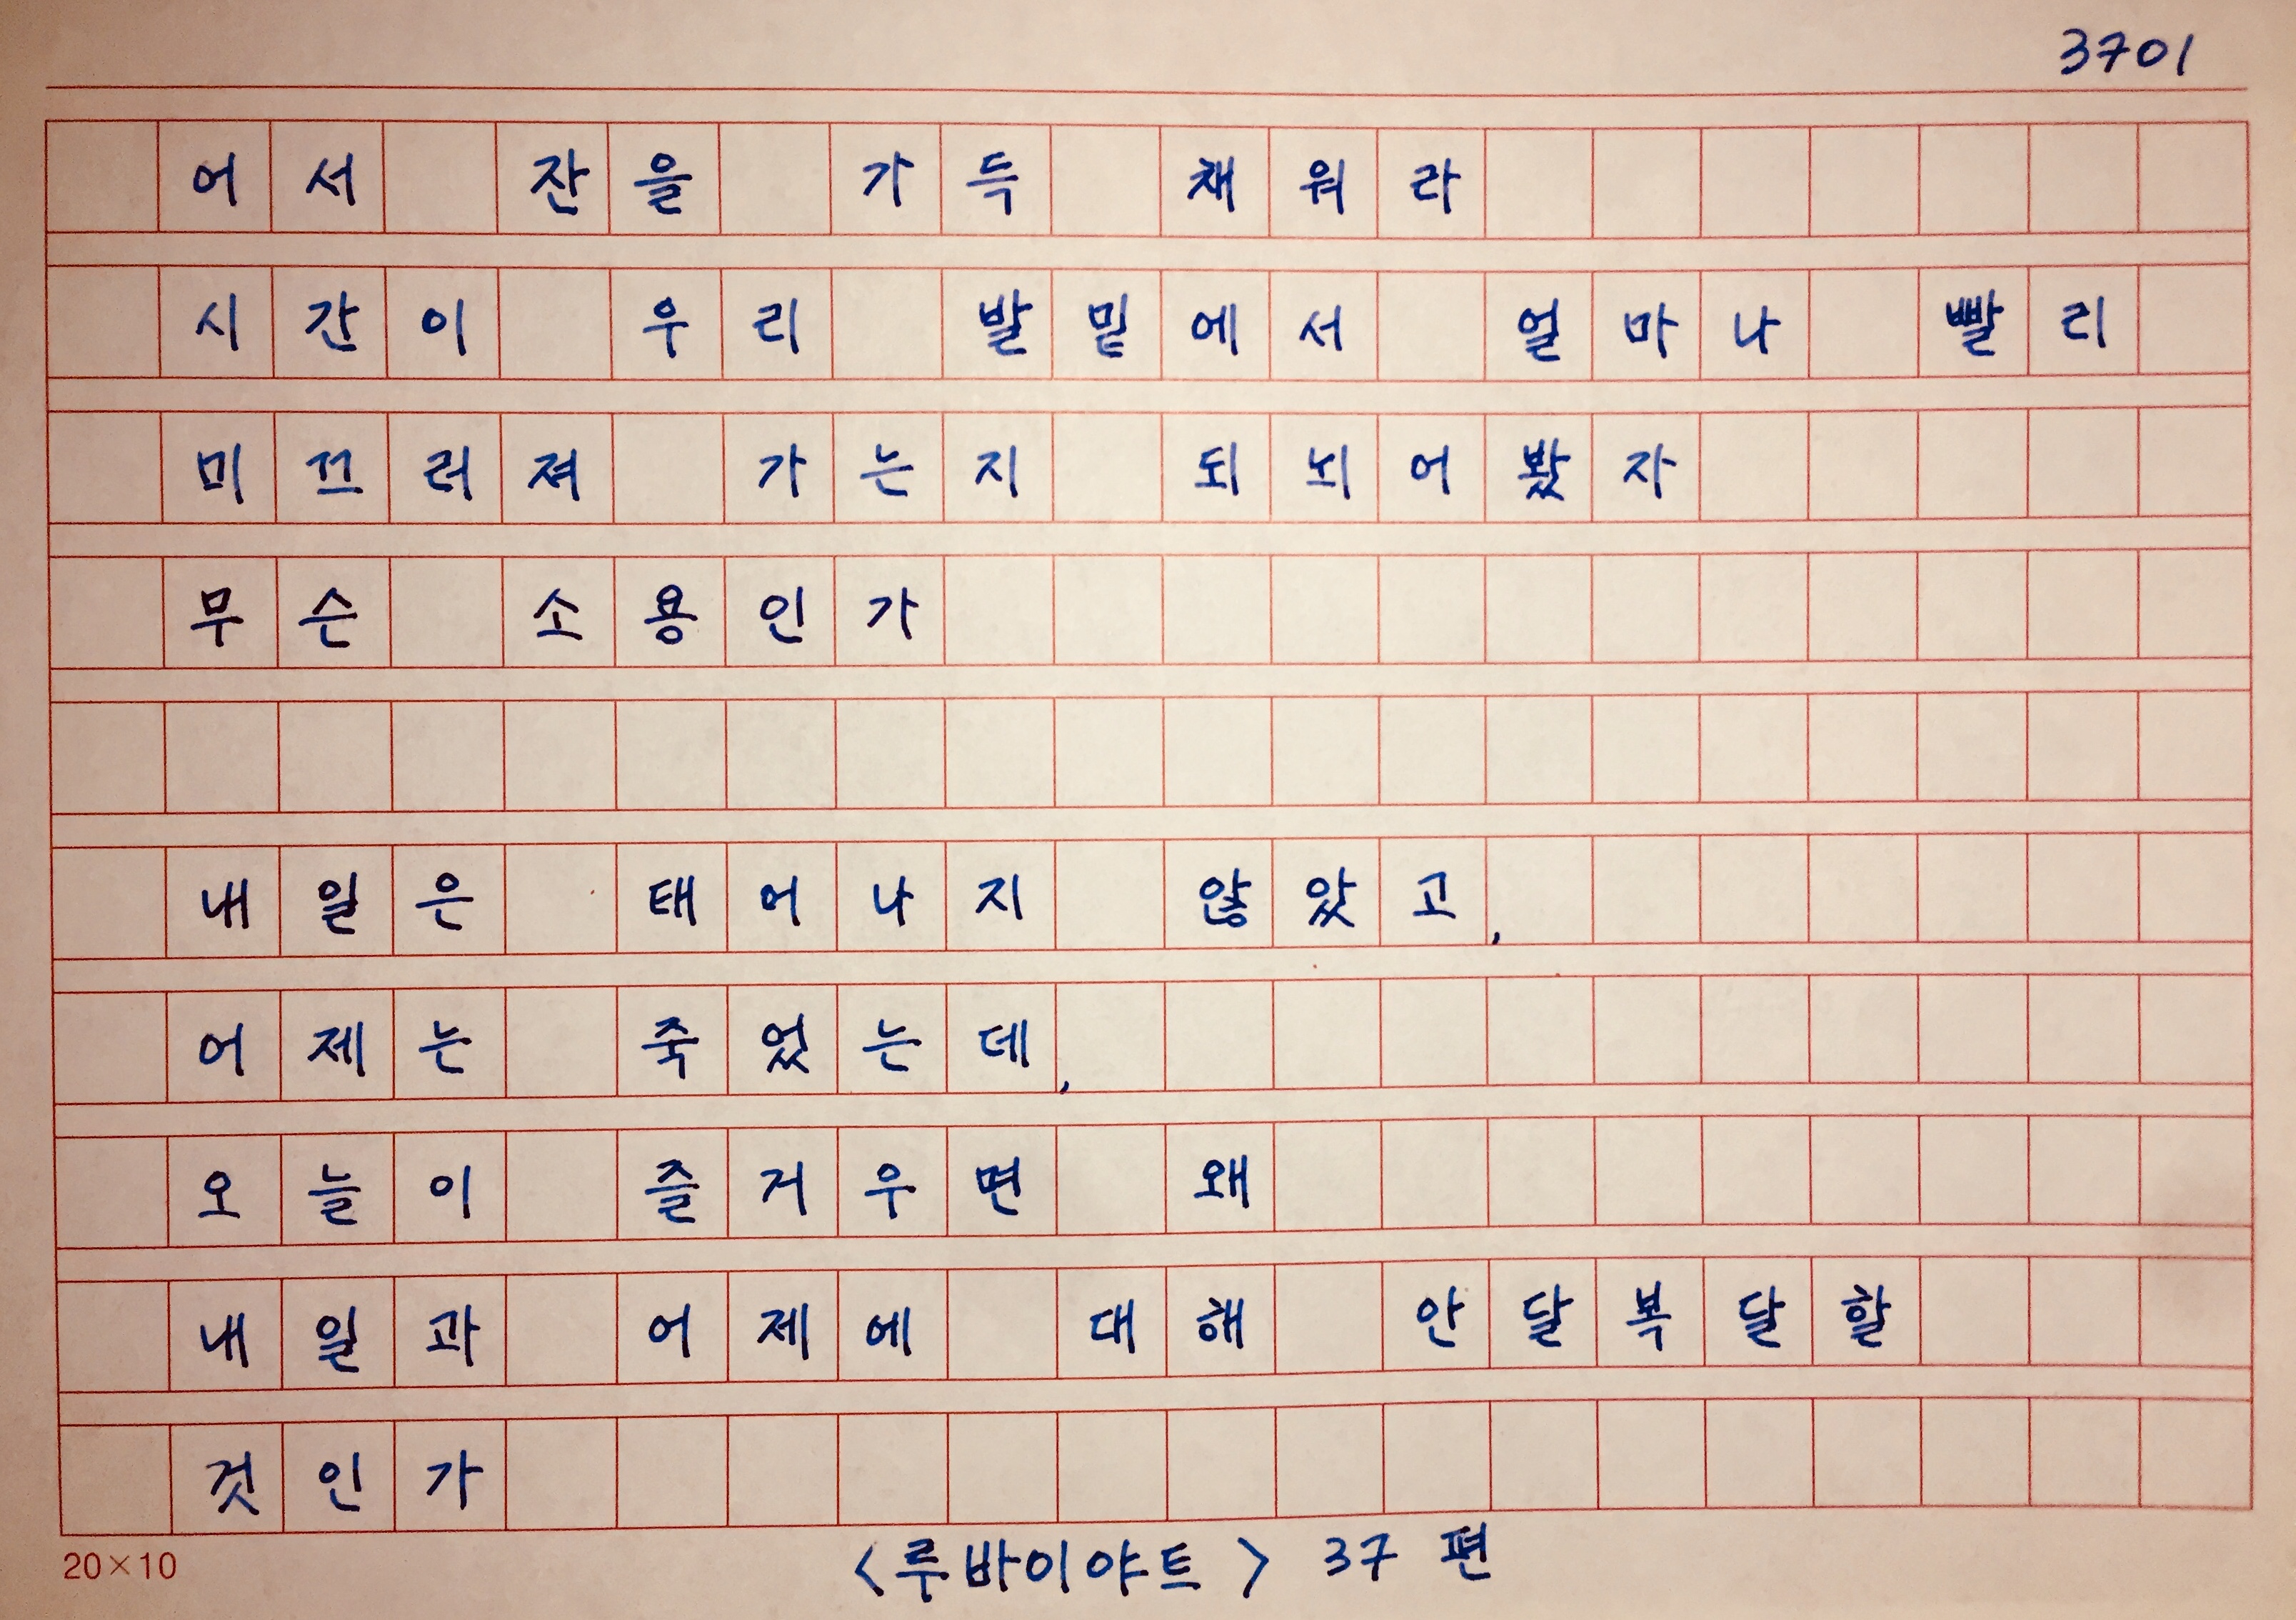 3701
어서 잔을 가득 채워라
시간이 우리 발밑에서 얼마나 빨리
미끄러져 가는지 되뇌어봤자
무슨 소용인가
내일은 태어나지 않았고,
어제는 죽었는데,
오늘이 즐거우면 왜
내일과 어제에 대해 안달복달할
것인가
<루바이야트> 37 편
20×10